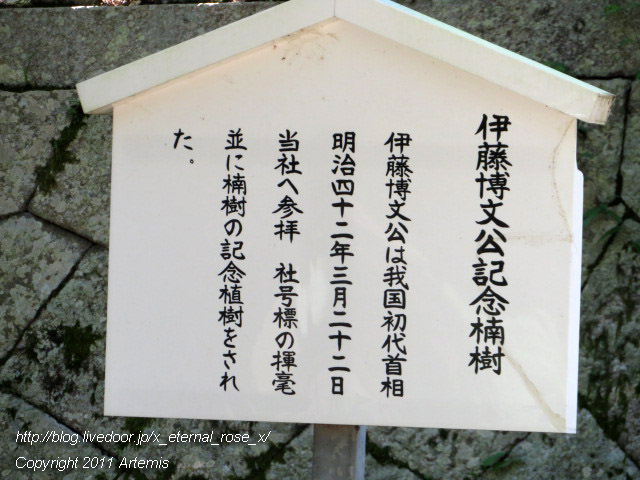 伊藤博文公記念楠樹
伊藤博文公は我国初代首相
明治四十二年三月二十二日
当社へ参拝　社号標の揮毫
並に楠樹の記念植樹をされ
た。
http://blog.livedoor.jp/x_eternal_rose_x/
Copyright 2011 Artemis